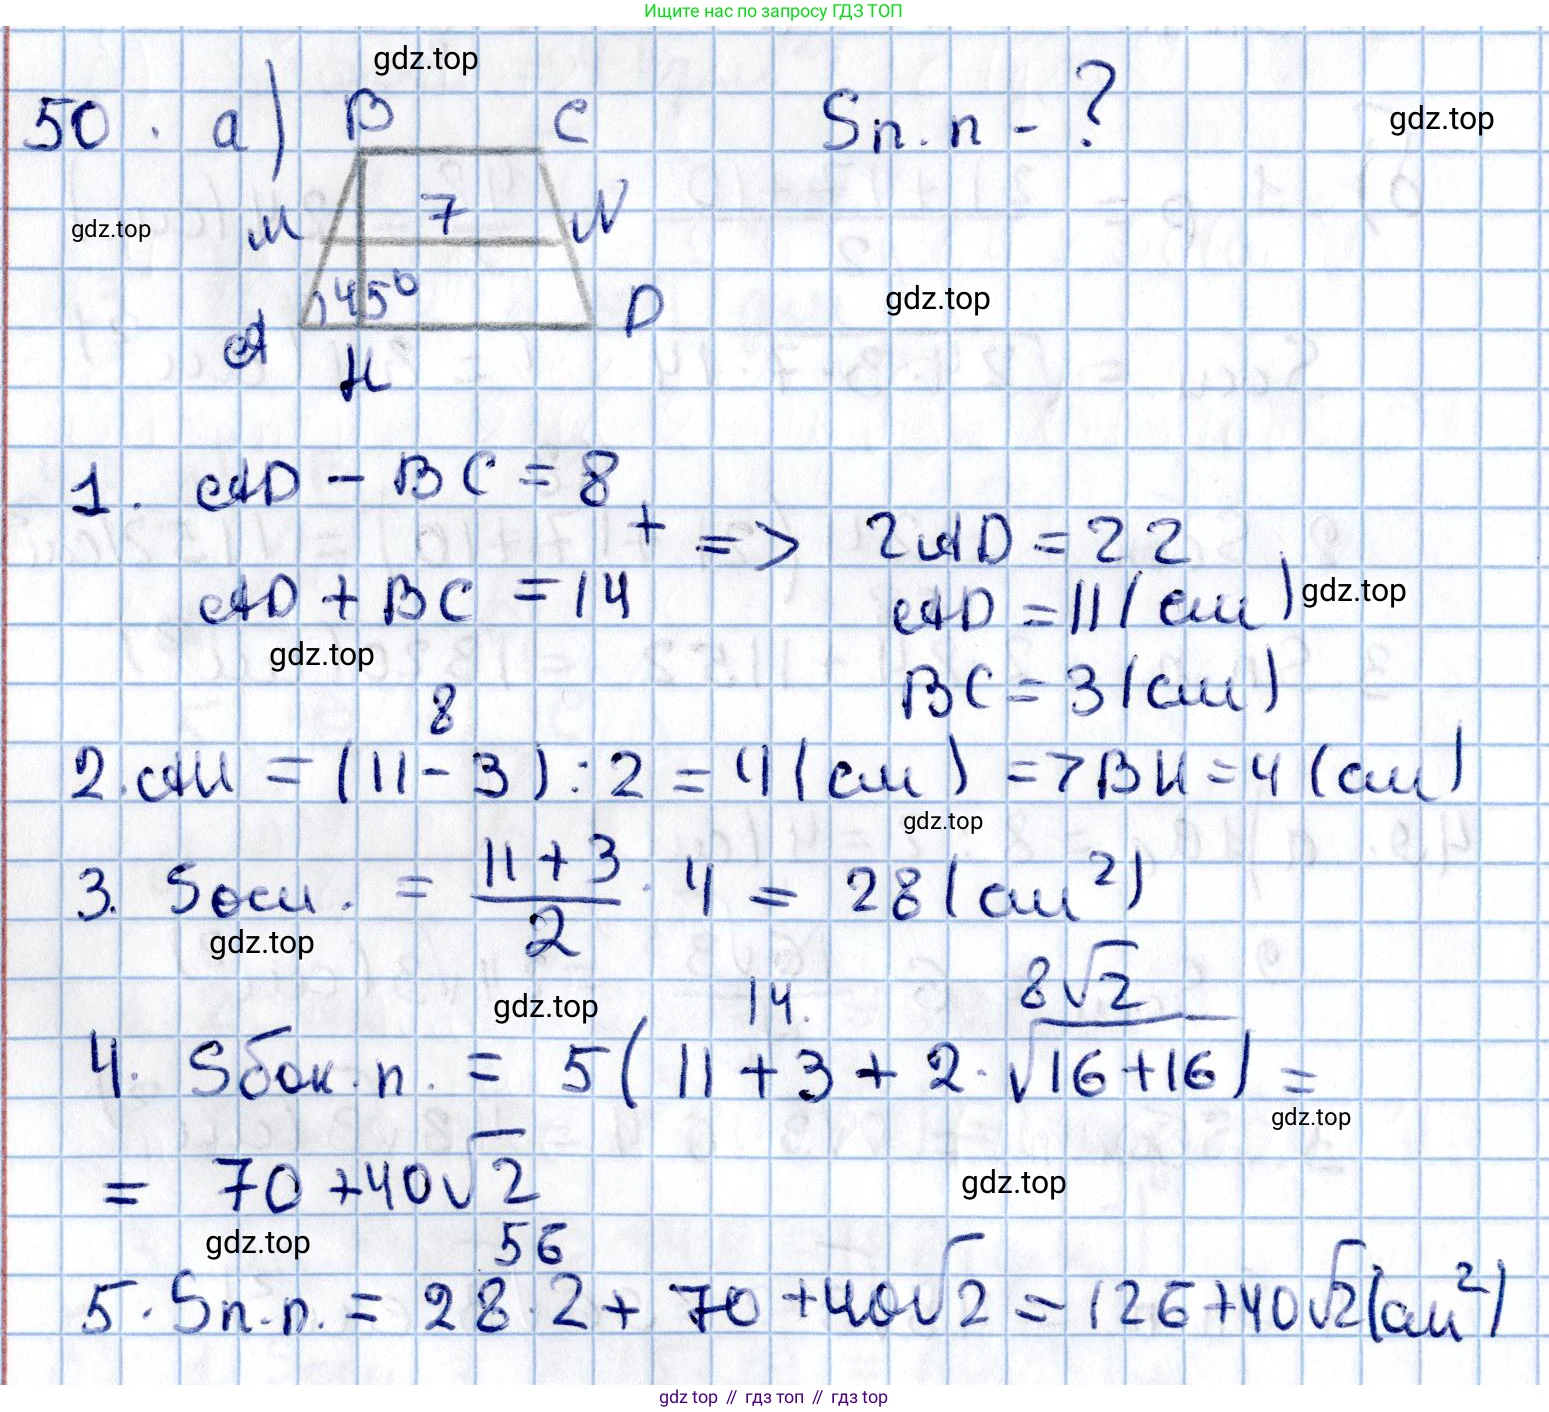 Ищите нас по запросу ГДЗ ТОП
gdz.top
50. а) B C Sп.п - ?
gdz.top
M 7 N
gdz.top
45° gdz.top
A H D
1. AD - BC = 8
+ => 2AD = 22
AD + BC = 14 AD = 11 (см) gdz.top
gdz.top
BC = 3 (см)
8
2. AH = (11 - 3) : 2 = 4 (см) => BH = 4 (см)
gdz.top
3. Sосн. = \frac{11 + 3}{2} · 4 = 28 (см²)
gdz.top
gdz.top 14. 8√2
4. Sбок.п. = 5(11 + 3 + 2 · √16+16) =
gdz.top
= 70 + 40√2 gdz.top
gdz.top 56
5. Sп.п. = 28 · 2 + 70 + 40√2 = 126 + 40√2 (см²)
gdz top // гдз топ // гдз top